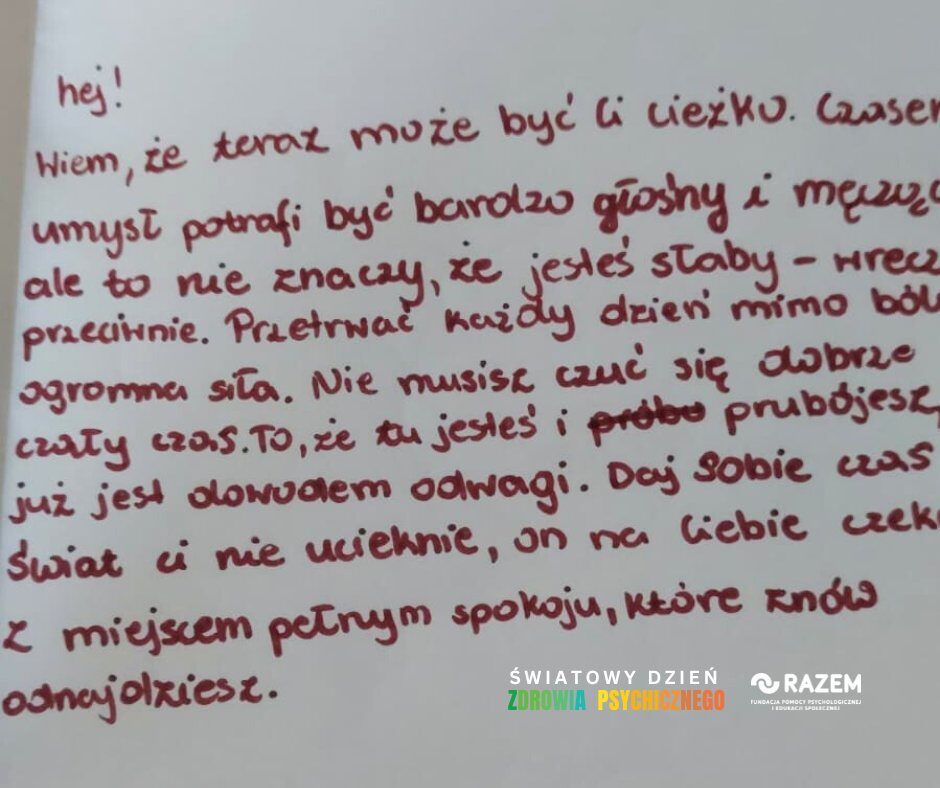 hej!
Wiem, że teraz może być Ci ciężko. Czasem
umysł potrafi być bardzo głośny i męcząc
ale to nie znaczy, że jesteś słaby - wręcz
przeciwnie. Przetrwać każdy dzień mimo ból
ogromna siła. Nie musisz czuć się dobrze
czały czas. To, że tu jesteś i próbu prubójesz,
już jest dowodem odwagi. Daj sobie czas
Świat ci nie ucieknie, on na Ciebie czek
z miejscem pełnym spokoju, które znów
odnajdziesz.
ŚWIATOWY DZIEŃ
ZDROWIA PSYCHICZNEGO
RAZEM
FUNDACJA POMOCY PSYCHOLOGICZNEJ
I EDUKACJI SPOŁECZNEJ